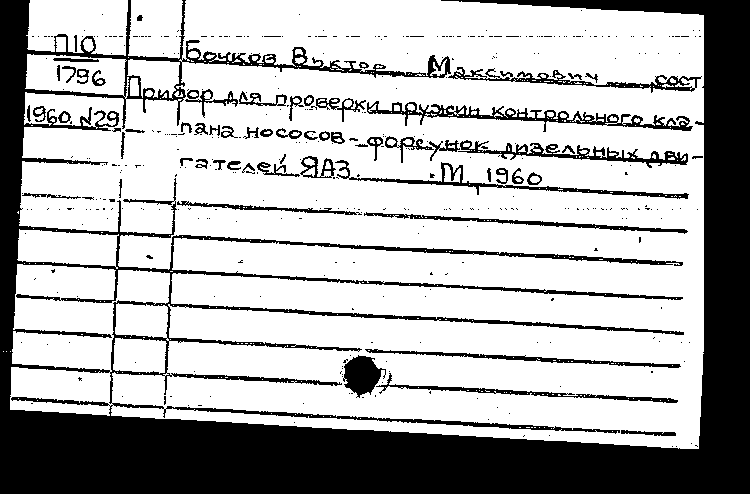 П10 Бочков, Виктор Максимович, сост.
1796 Прибор для проверки пружин контрольного кла-
1960. №29 пана нососов-форсунок дизельных дви-
гателей ЯАЗ. М, 1960